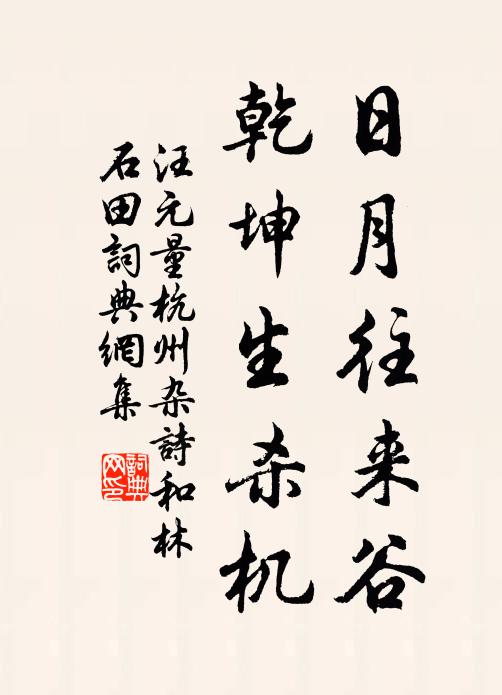 日月往来谷
乾坤生杀机
汪元量杭州杂詩和林
石田詞典網集
詞典
网印